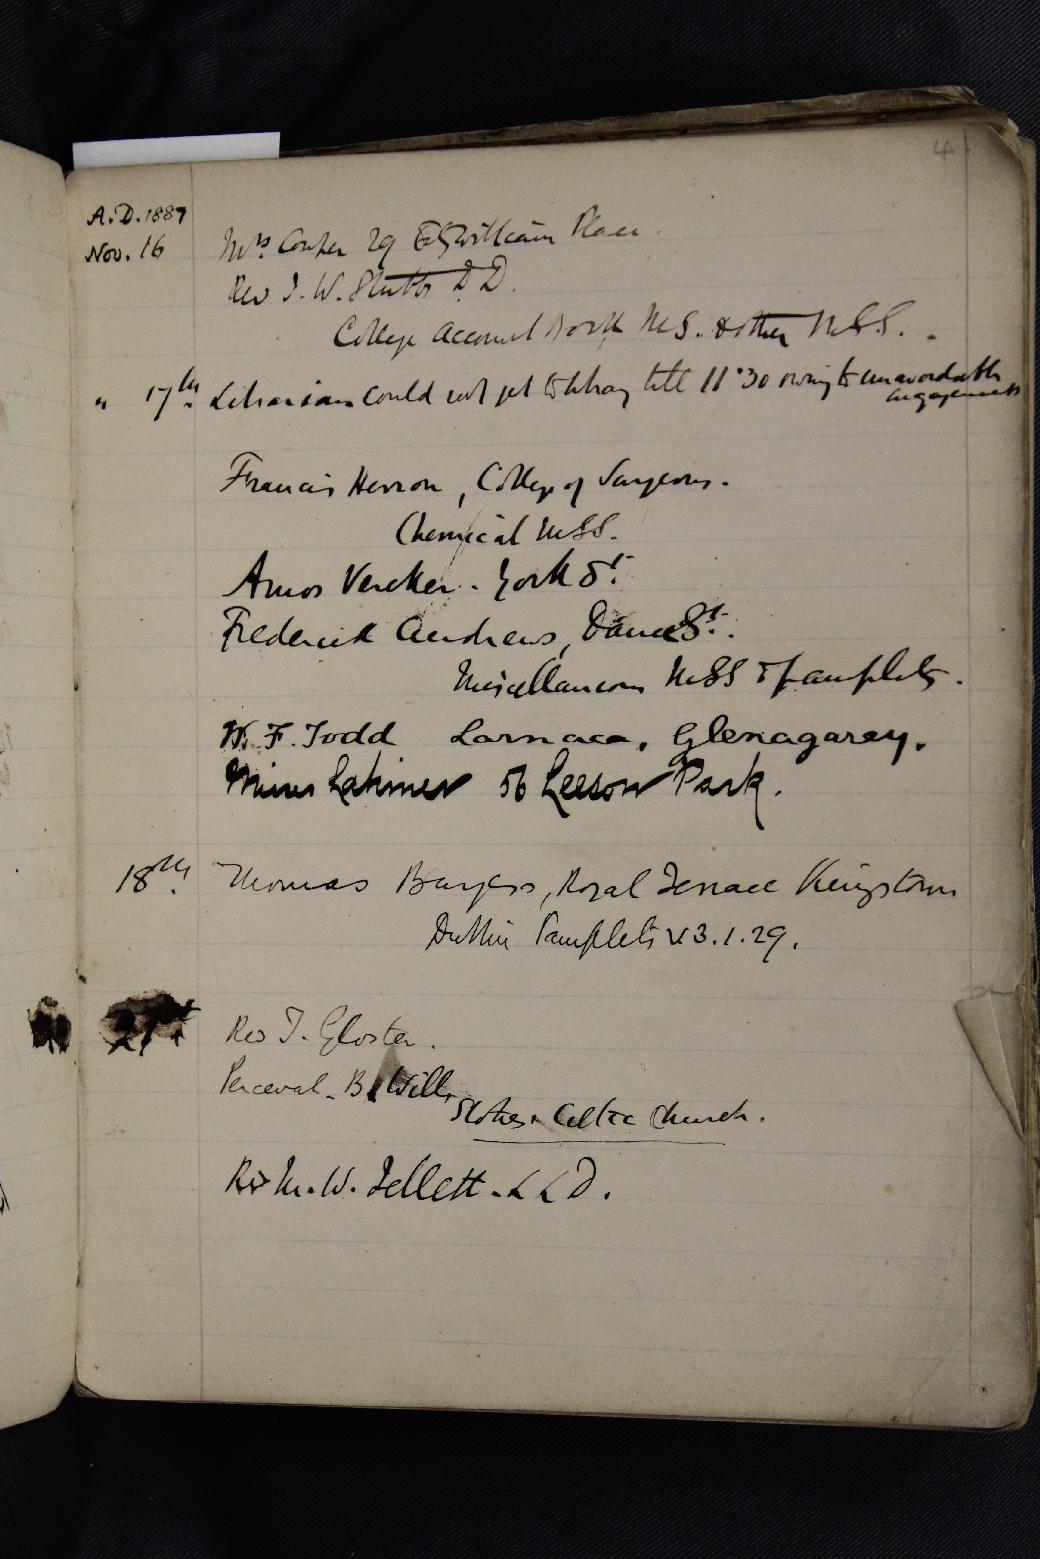 4
A.D. 1887
Nov. 16 Mrs. Cowper 29 Fitzwilliam Place.
Rev J. W. Stubbs D.D.
College Account Book MS. & other MSS.
" 17th. Librarian could not get to library till 11.30 owing to unavoidable
engagements
Francis Herron, College of Surgeons.
Chemical MSS.
Amos Vereker. York St.
Frederick Andrews, Dame St.
Miscellaneous MSS & pamplets.
W. F. Todd Larnaca, Glenagarey.
Latimer 56 Leeson Park.
18th. Thomas Burgess, Royal Terrace Kingstown
Dublin Pamplets 3.1.29.
21st Rev T. Gloster.
Perceval. B. Will
Stokes. Celtic Church.
Rev M. W. Jellett. LLD.